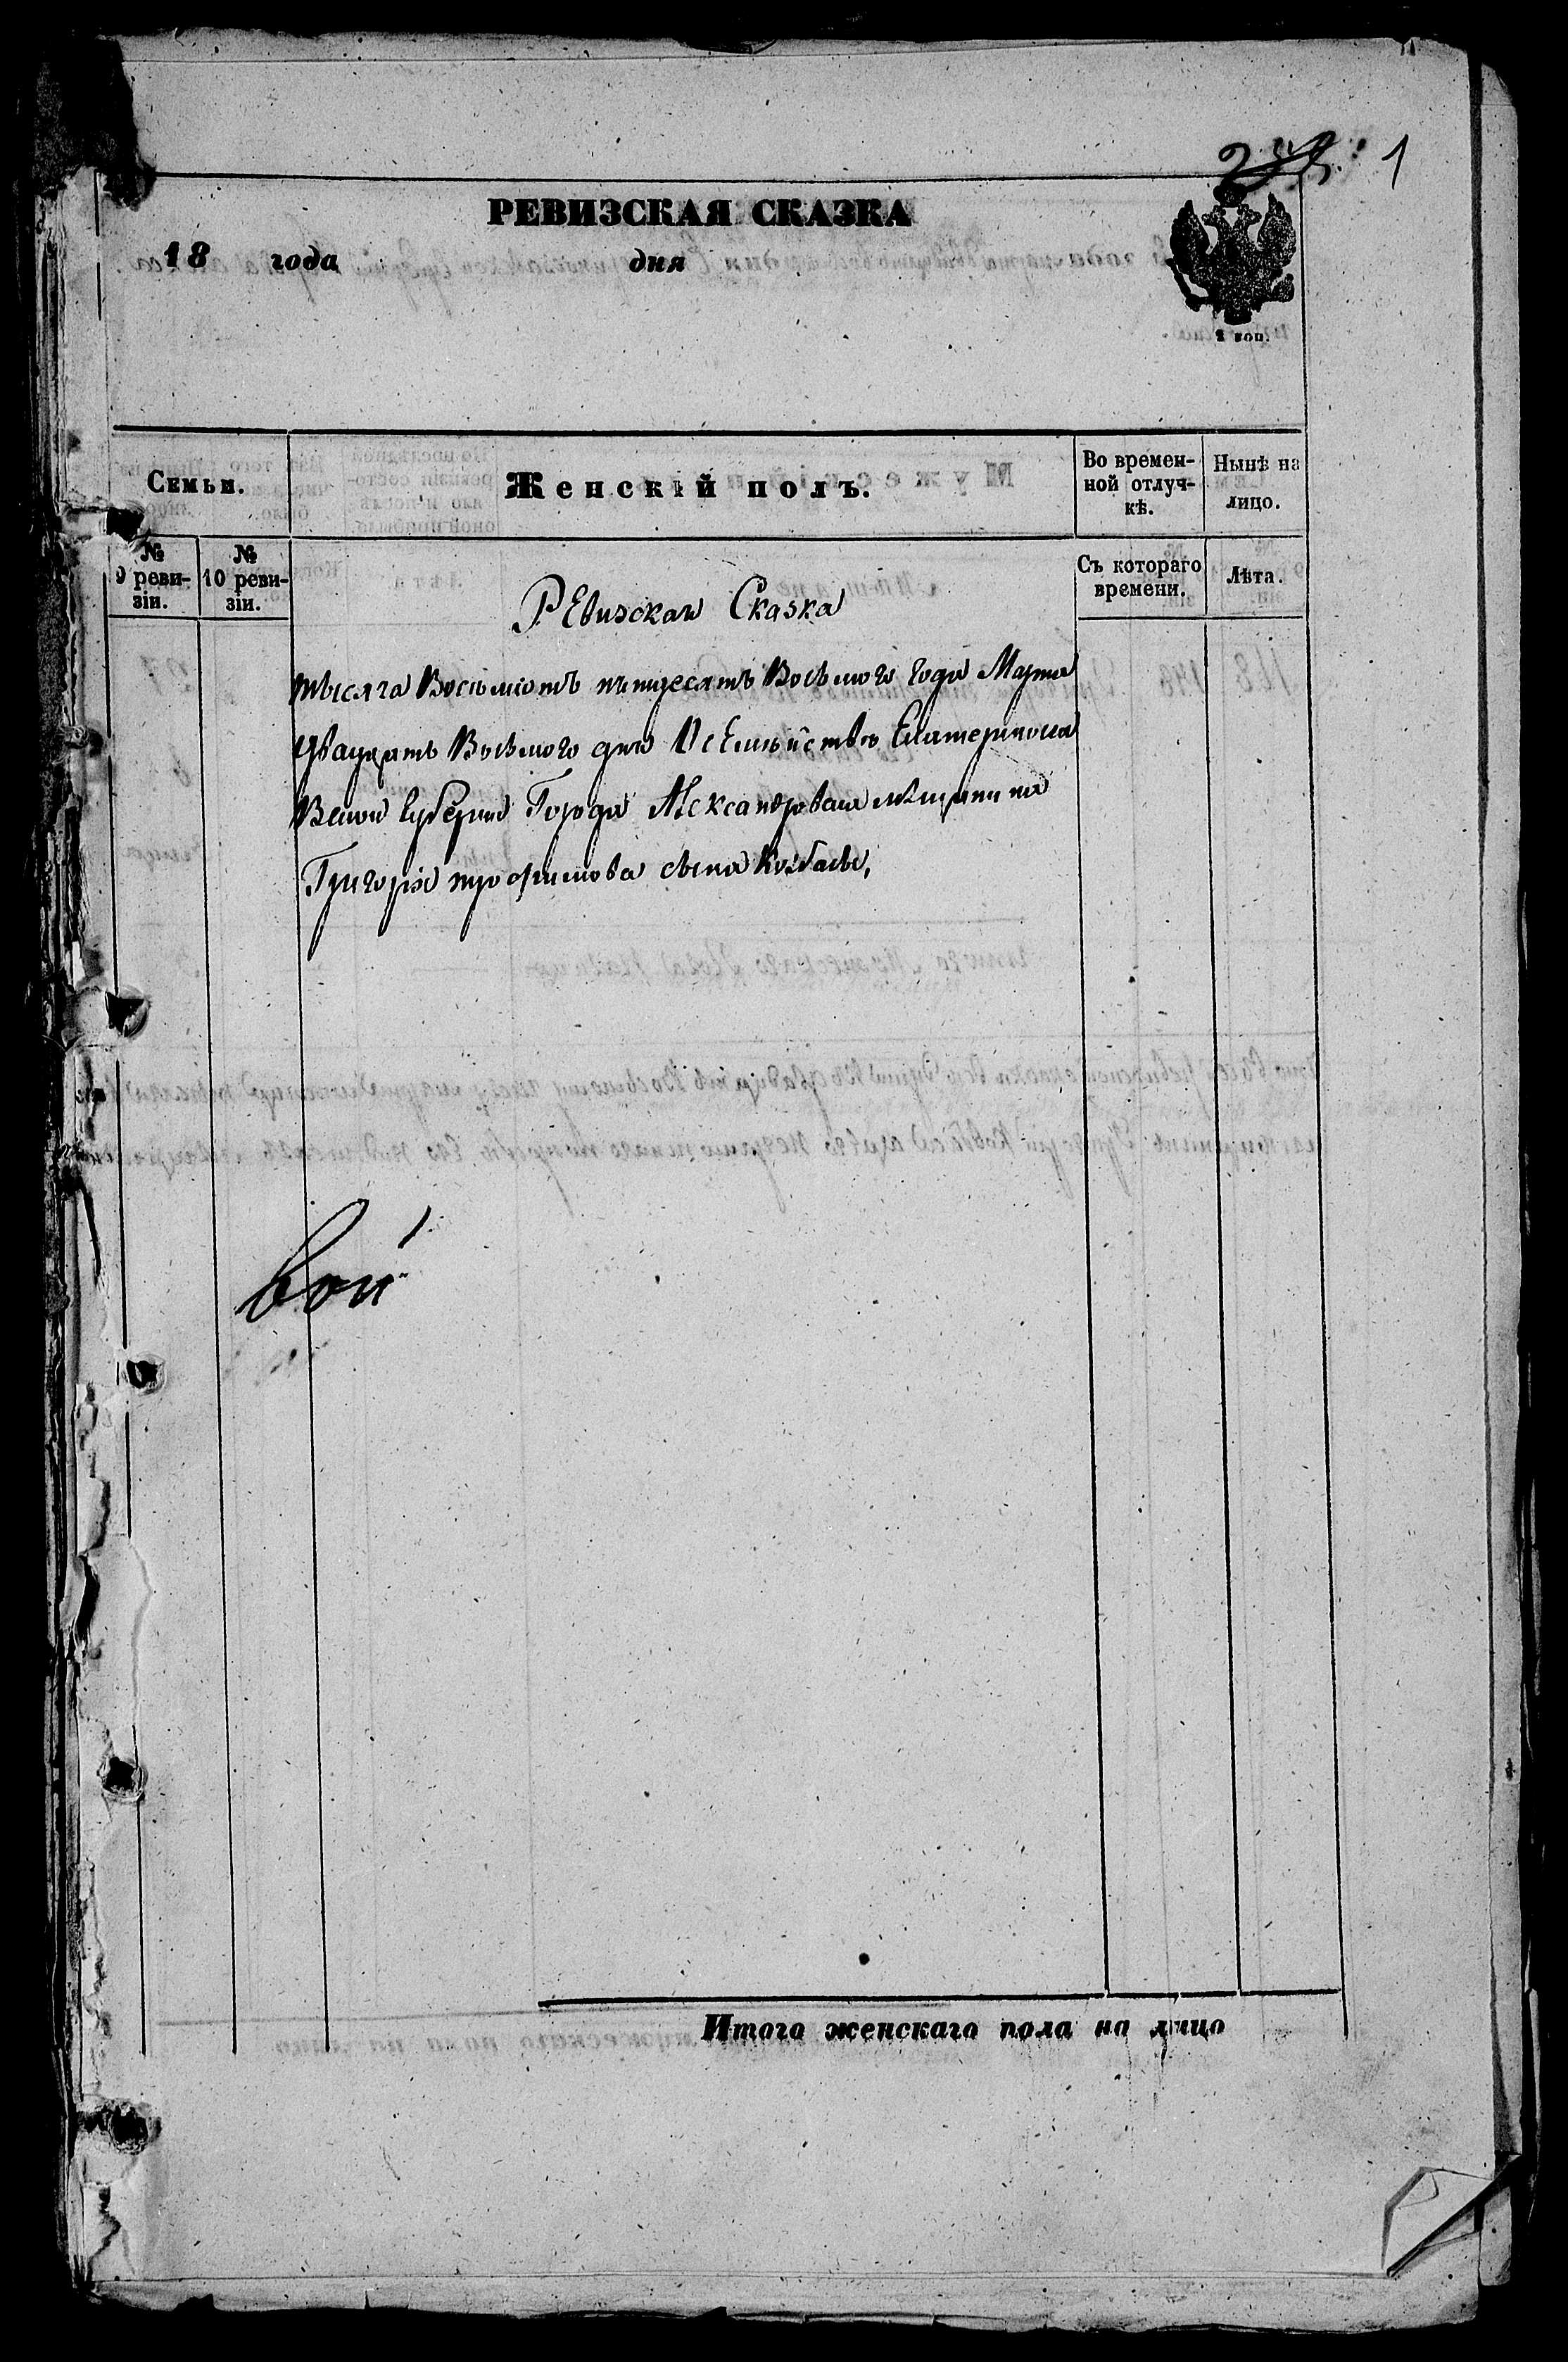 1
РЕВИЗСКАЯ СКАЗКА
18 года дня
2 коп.
Семьи.
Женскій полъ.
Во времен-
ной отлуч-
кѣ.
Нынѣ на
лицо.
№
9 реви-
зіи.
№
10 реви-
зіи.
Съ котораго
времени.
Лѣта.
Ревизская Сказка
тысяча Восьмсотъ пятдесятъ Восьмого года Марта
двадцать Восьмого дня О сЕмействѣ Екатериносла
Вской Губернiи Города Александровска мѣщанина
Григорiя трофимова сына Ковбасы,
вой
Итого женскаго пола на лицо